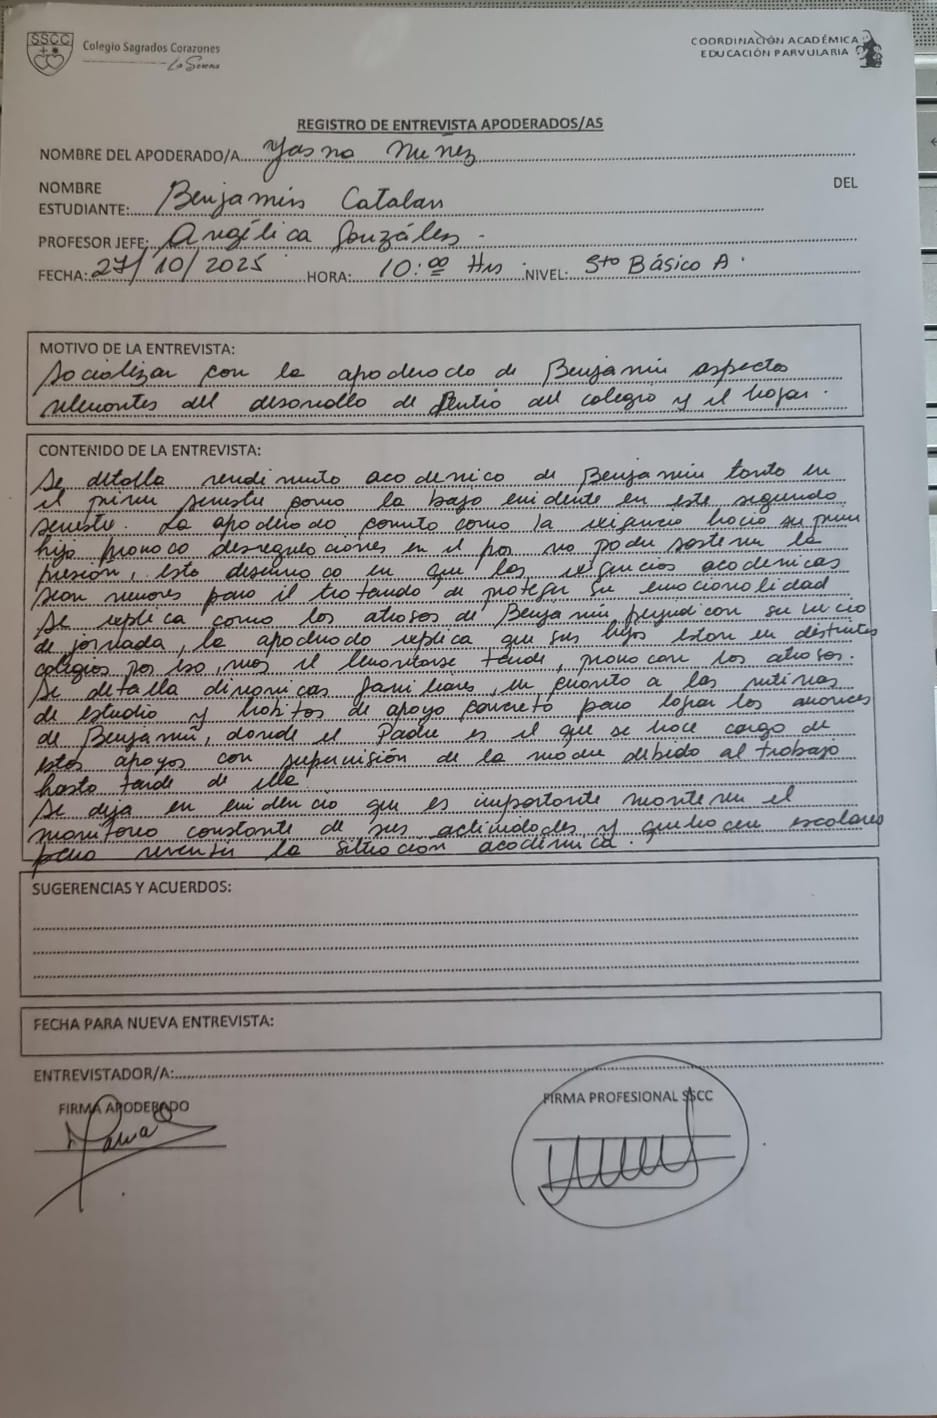 SSCC
Colegio Sagrados Corazones
La Serena
COORDINACIÓN ACADÉMICA
EDUCACIÓN PARVULARIA
REGISTRO DE ENTREVISTA APODERADOS/AS
NOMBRE DEL APODERADO/A Yasna Nuñez
NOMBRE DEL
ESTUDIANTE: Benjamín Catalan
PROFESOR JEFE: Angélica González.
FECHA: 27/10/2025 HORA: 10:00 Hrs NIVEL: 5to Básico A.
MOTIVO DE LA ENTREVISTA:
Socializar con la apoderada de Benjamín aspectos
relevantes del desarrollo de dentro del colegio y el hogar.
CONTENIDO DE LA ENTREVISTA:
Se detalla rendimiento academico de Benjamín tanto en
el primer semestre como la baja evidente en este segundo
semestre. La apoderada comenta como la exigencia hacia su primer
hijo provoco desregulaciones en el por no poder sostener la
presión, esto desemboco en que las exigencias academicas
sean menores para el tratando de proteger su emocionalidad
Se explica como los atrasos de Benjamín perjudican su inicio
de jornada, la apoderada explica que sus hijos estan en distintos
colegios por eso, mas el levantarse tarde, provocan los atrasos.
Se detalla dinamicas familiares, en cuanto a las rutinas
de estudio y habitos de apoyo concreto para lograr los avances
de Benjamín, donde el Padre es el que se hace cargo de
estos apoyos con supervisión de la madre debido al trabajo
hasta tarde de ella.
Se deja en evidencia que es importante mantener el
monitoreo constante de sus actividades y quehacer escolares
para revertir la situacion academica.
SUGERENCIAS Y ACUERDOS:
FECHA PARA NUEVA ENTREVISTA:
ENTREVISTADOR/A:
FIRMA APODERADO
FIRMA PROFESIONAL SSCC